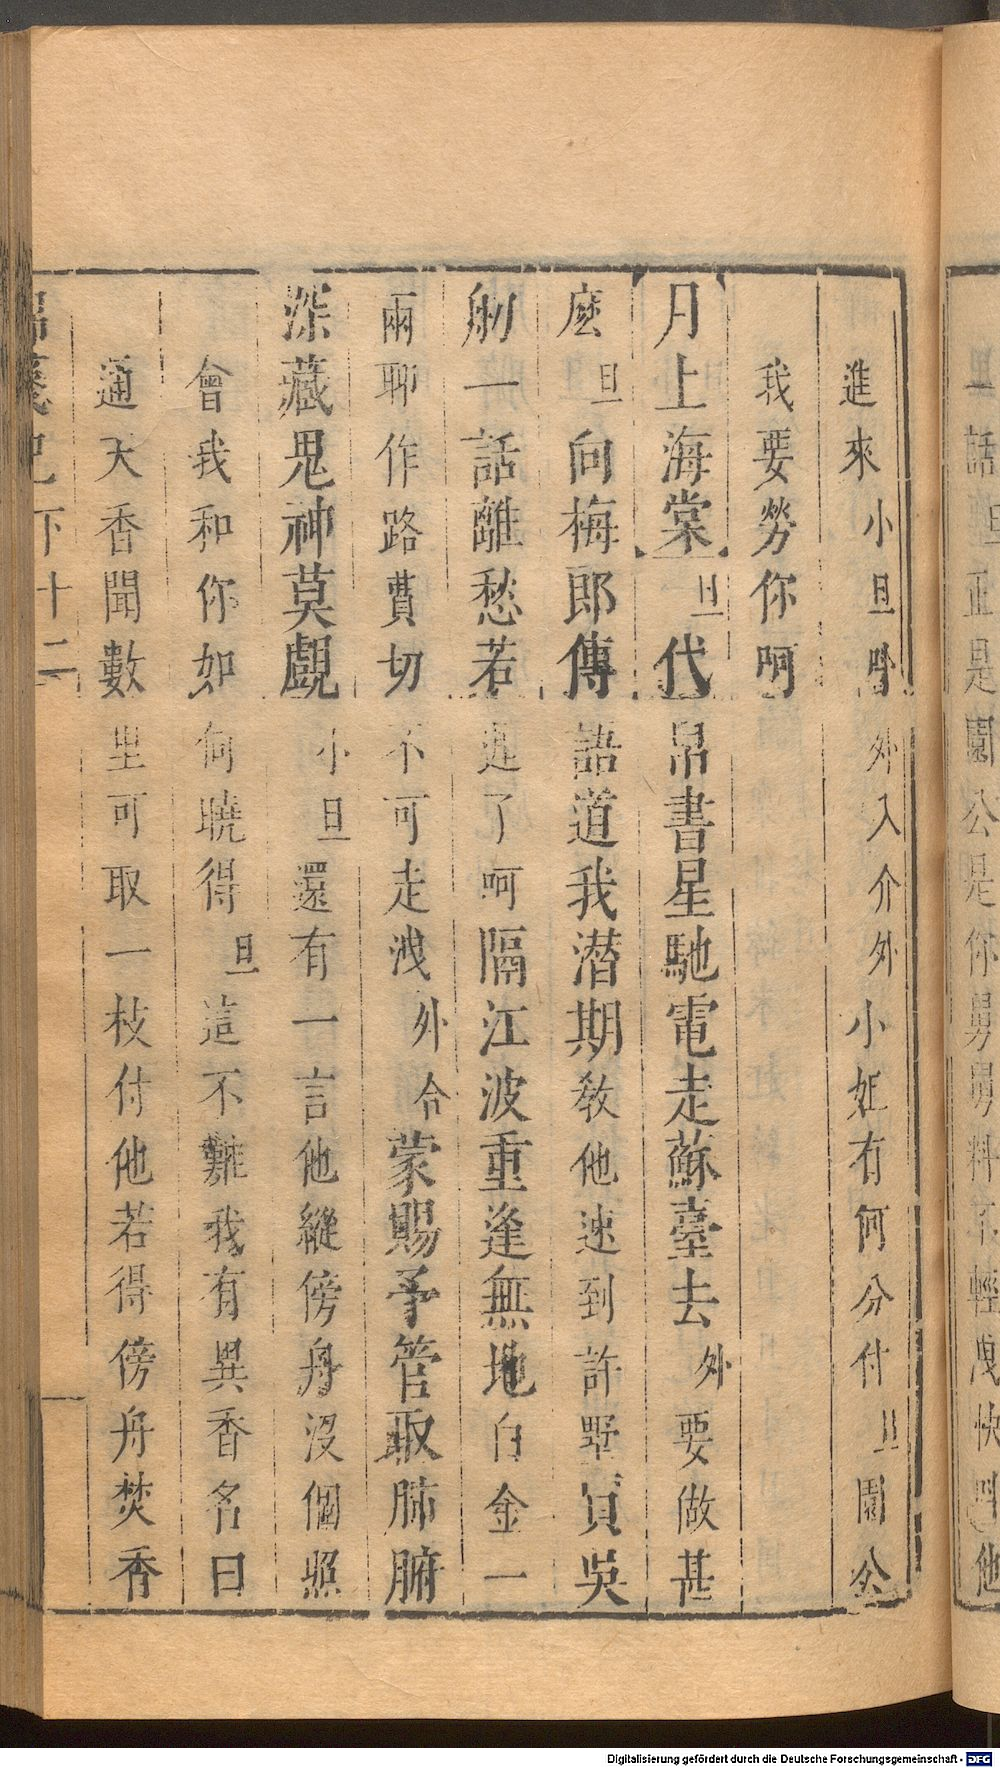 里話旦正是園公是你舅舅料不輕洩快叫他
進來小旦喚外入介外小姐有何分付旦園公
我要勞你呵
月上海棠旦代帛書星馳電走蘇臺去外要做甚
麽旦向梅郎傳語道我潛期教他速到許墅買吳
舠一話離愁若遲了呵隔江波重逢無地白金一
兩聊作路費切不可走洩外合蒙賜予管取肺腑
深藏鬼神莫覷小旦還有一言他縱傍舟沒個照
會我和你如何曉得旦這不難我有異香名曰
通天香聞數里可取一枝付他若得傍舟焚香
箋記下十二
Digitalisierung gefördert durch die Deutsche Forschungsgemeinschaft - DFG